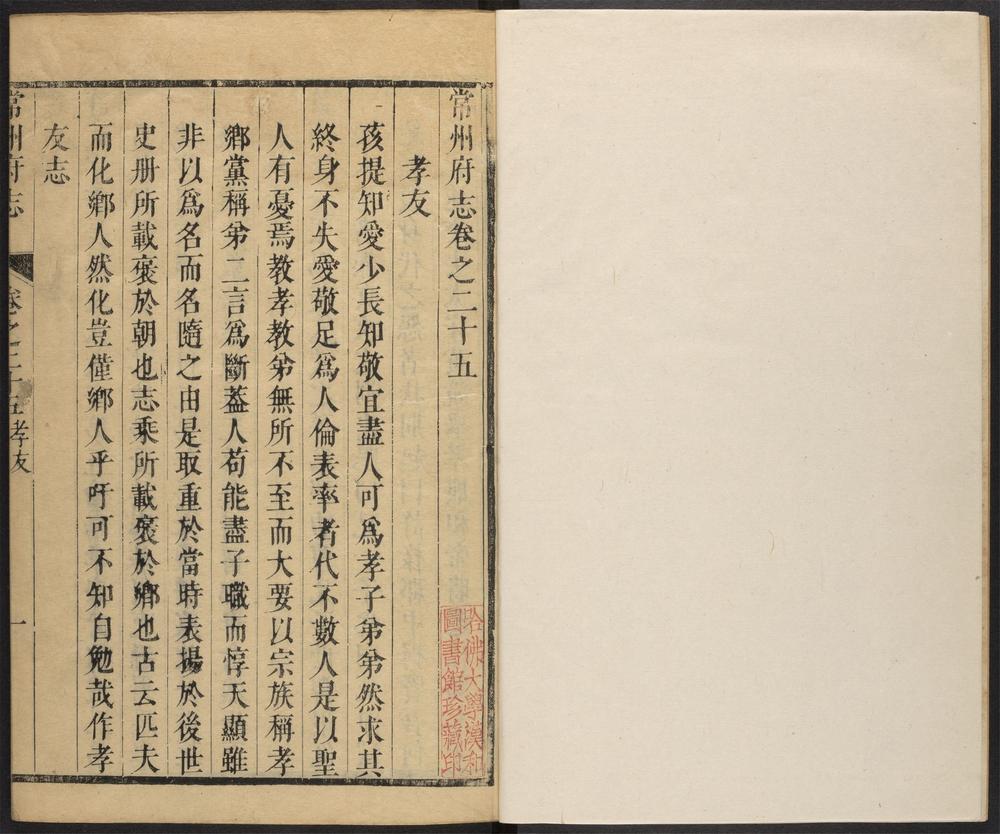 常州府志卷之二十五
孝友
孩提知愛少長知敬宜盡人可爲孝子弟弟然求其
終身不失愛敬足爲人倫表率者代不數人是以聖
人有憂焉教孝教弟無所不至而大要以宗族稱孝
鄉黨稱弟二言爲斷葢人苟能盡子職而惇天顯雖
非以爲名而名隨之由是取重於當時表揚於後世
史册所載褒於朝也志乘所載褒於鄉也古云匹夫
而化鄉人然化豈僅鄉人乎吁可不知自勉哉作孝
友志
常州府志 卷之二十五 孝友 一
哈佛大學漢和
圖書館珍藏印